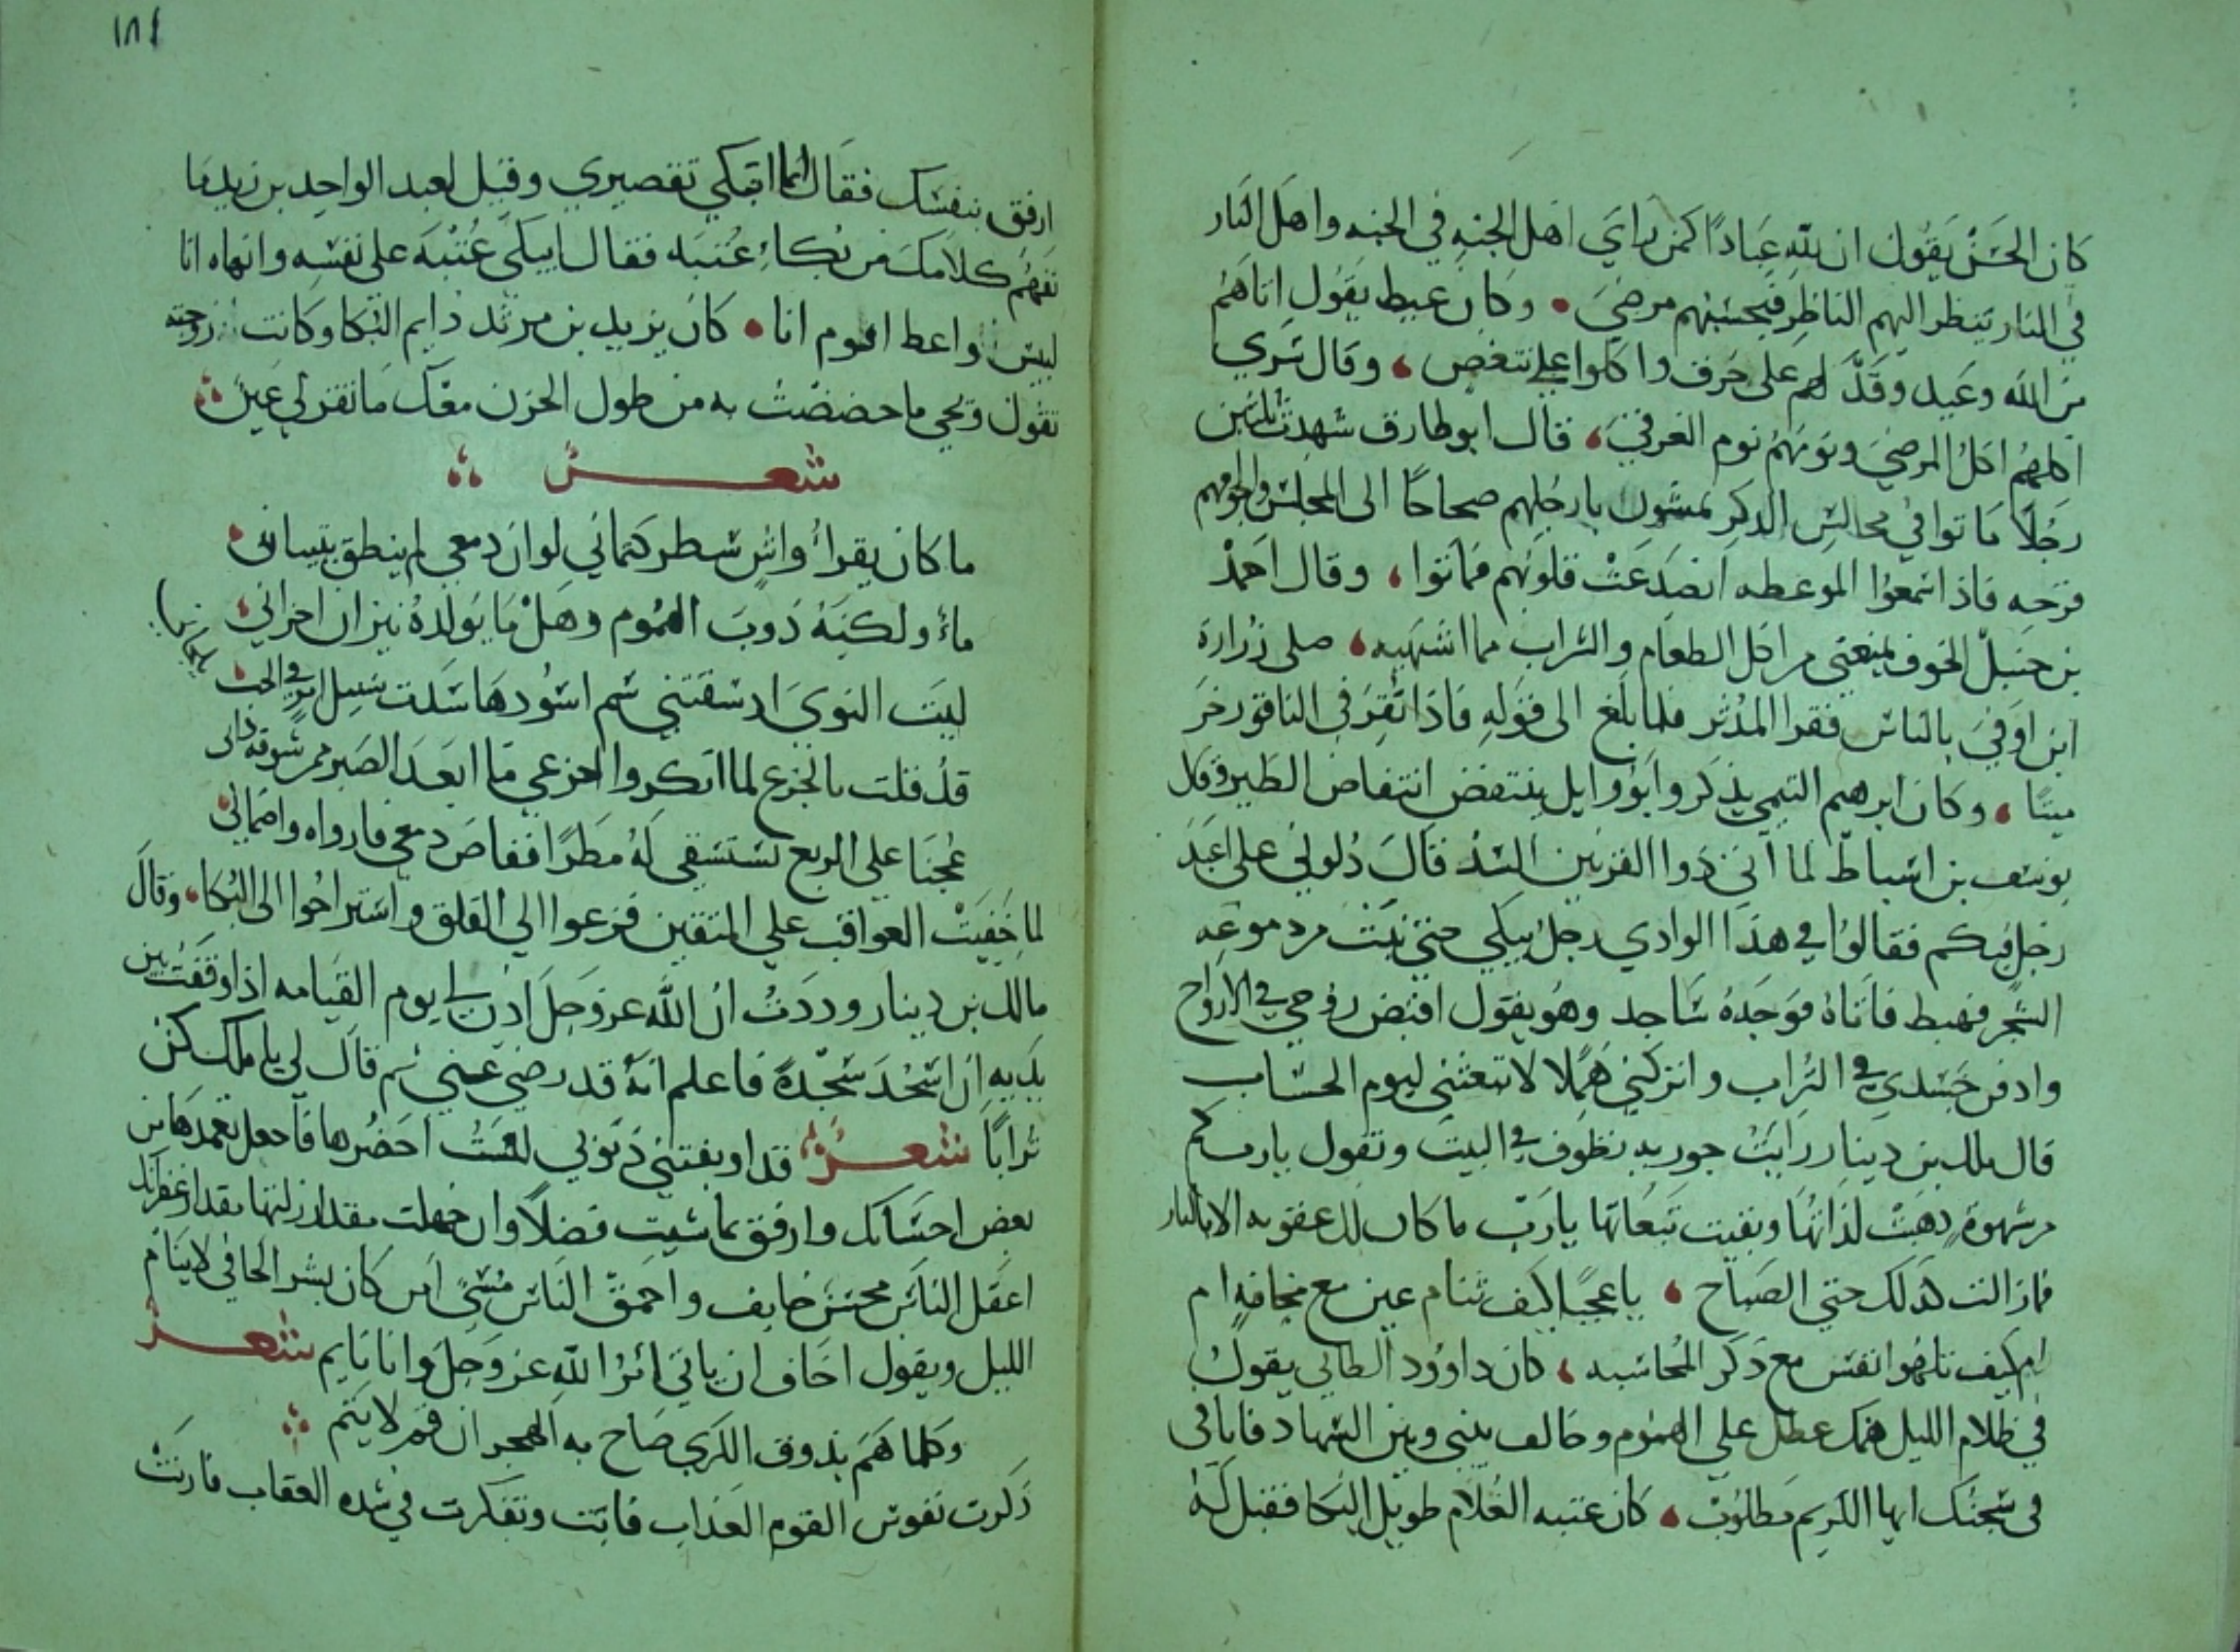 كان الحسن يقول ان لله عبادا كمن راي اهل الجنه في الجنه واهل النار
في النار ينظر اليهم الناظر فيحسبهم مرضي وكان عبيط يقول اتاهم
من الله وعيد وقد لهم على حرف واكلوا على تنغص وقال سري
اكلهم اكل المرضي ونومهم نوم الغرقي قال ابو طارق شهدت ثلثين
رجلا ماتوا في مجالس الذكر يمشون بارجلهم صحاحا الى المجلس واجوافهم
قرحه فاذا سمعوا الموعظه انصدعت قلوبهم فماتوا وقال احمد
بن حنبل الخوف يمنعني من اكل الطعام والشراب مما اشتهيه صلى زرارة
ابن اوفي بالناس فقرا المدثر فلما بلغ الى قوله فاذا نقر في الناقور خر
ميتا وكان ابرهيم التيمي يذكر وابو وايل ينتفض انتفاض الطير وقال
يوسف بن اسباط لما اتي ذوا القرنين السد قال دلوني على اعبد
رجل فيكم فقالوا في هذا الوادي رجل يبكي حتي نبت من دموعه
الشجر فهبط فاتاه فوجده ساجد وهو يقول اقبض روحي في الارواح
وادفن جسدي في التراب واتركني هملا لا تبعثني ليوم الحساب
قال ملك بن دينار رايت جويريه تطوف في البيت وتقول يارب كم
من شهوة ذهبت لذاتها وبقيت تبعاتها يا رب ما كان لك عقوبه الا بالنار
فما زالت كذلك حتي الصباح يا عجبا كيف تنام عين مع مخافه ام
ام كيف تلهوا نفس مع ذكر المحاسبه كان داوود الطاي يقول
في ظلام الليل همك عطل علي الهموم وخالف بيني وبين السهاد فانا في
في سجنك ايها الكريم مطلوب كان عتبه الغلام طويل البكا فقيل له
١٨٤
ارفق بنفسك فقال انما ابكي تقصيري وقيل لعبد الواحد بن زيد ما
نفهم كلامك من بكاء عتبه فقال ايبكي عتبه على نفسه وانهاه انا
لبيس واعظ اقوم انا كان يزيد بن مرثد دايم البكا وكانت زوجته
تقول ويحي ما خصصت به من طول الحزن معك ما تقر لي عين
شعر
ما كان يقرأ واش سطر كتماني لو ان دمعي لم ينطق بتبياني
ماء ولكنه ذوب الهموم وهل ما يولده نيزان احزاني
ليت النوي اذ سقتني سم اسودها سدت سبيل امرئ في الحب يلحاني
قد قلت بالجزع لما انكروا اجزعي ما ابعد الصبر ممن شوقه دانى
عجنا علي الربع نستسقي له مطرا ففاض دمعي فارواه واظماني
لما خفيت العواقب علي المتقين فزعوا الي القلق واستراحوا الى البكا وقال
مالك بن دينار وددت ان الله عز وجل اذن لي يوم القيامه اذا وقفت بين
يديه ان اسجد سجدة فاعلم انه قد رضي عني ثم قال لي يا ملك كن
ترابا شعر قد اوبقتني ذنوبي لست احصرها فاجعل تغمدها من
بعض احسانك وارفق بما شيت فضلا وان جهلت مقدار زلتها مقدار غفرانك
اعقل الناس محسن خايف واحمق الناس مسئ امن كان بشر الحافي لا ينام
الليل ويقول اخاف ان ياتي امر الله عز وجل وانا نايم شعر
وكلما هم بذوق الكري صاح به الهجران قم لا ينم
ذكرت نفوس القوم العذاب فانت وتفكرت في شده العقاب فارنت